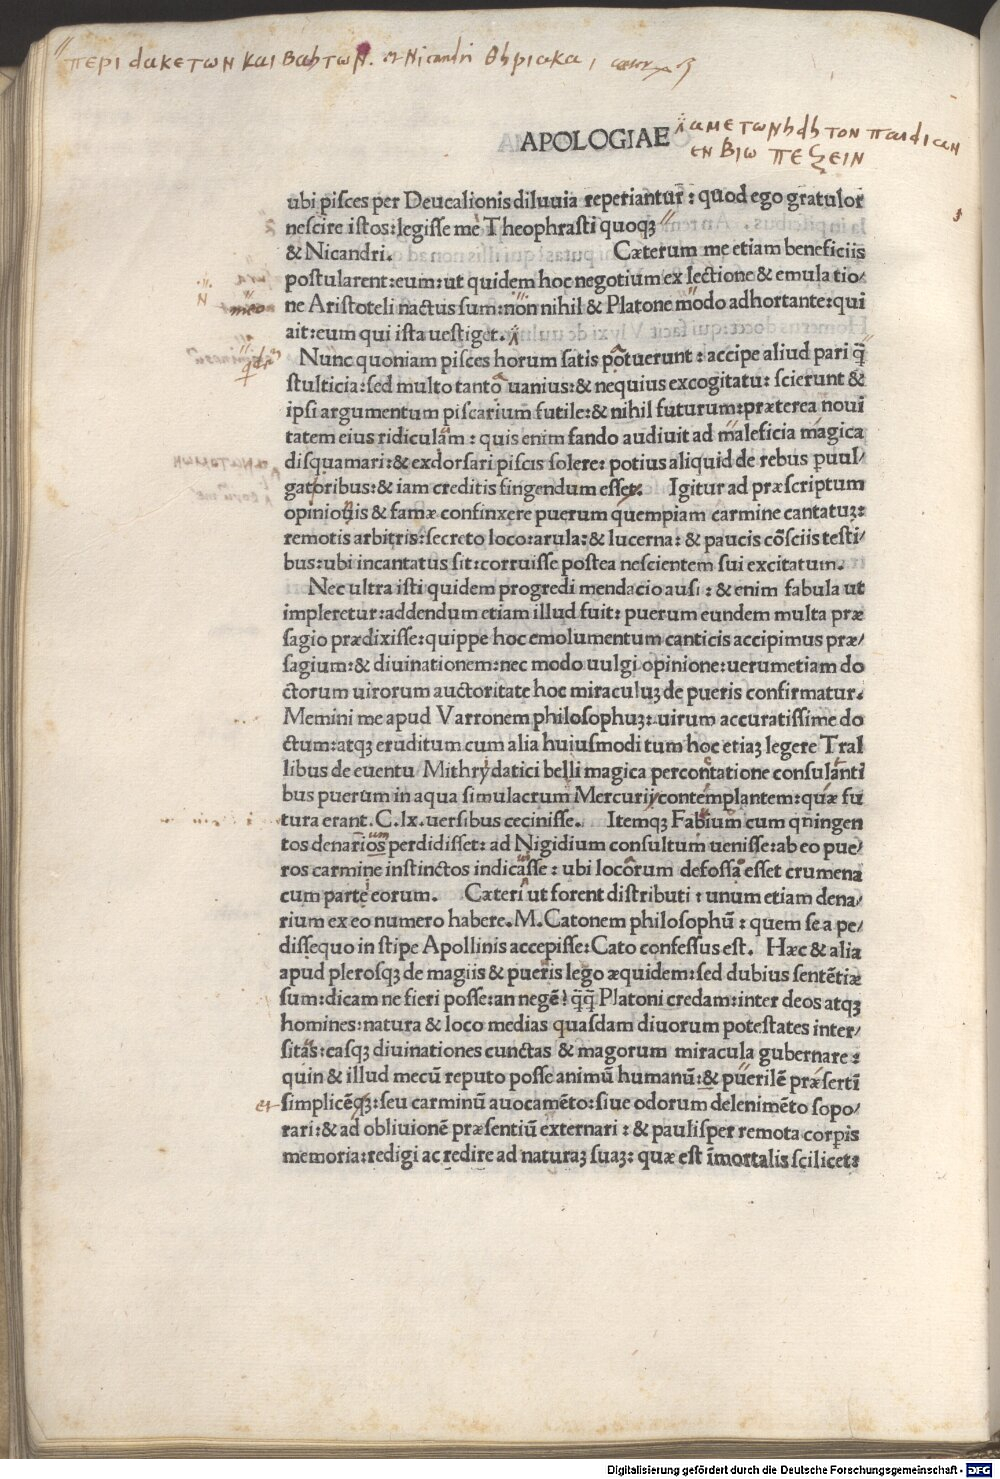 περι δακετων και βλητων. et Nicandri θηριακα,
APOLOGIAE
αμετωνηδη τον παιδιαν
εν βιω πεζειν
ubi pisces per Deucalionis diluuia reperiantur: quod ego gratulor
nescire istos: legisse me Theophrasti quoqꝫ
& Nicandri. Cæterum me etiam beneficiis
postularent: eum: ut quidem hoc negotium ex lectione & emulatio/
ne Aristoteli nactus sum: non nihil & Platone modo adhortante: qui
ait: eum qui ista uestiget.
Nunc quoniam pisces horum satis potuerunt: accipe aliud pari q̄
stulticia: sed multo tanto uanius: & nequius excogitatu: scierunt &
ipsi argumentum piscarium futile: & nihil futurum: præterea noui
tatem eius ridiculam: quis enim fando audiuit ad maleficia magica
disquamari: & exdorsari piscis solere: potius aliquid de rebus puul/
gatoribus: & iam creditis fingendum esset. Igitur ad præscriptum
opiniouis & famæ confinxere puerum quempiam carmine cantatuꝫ:
remotis arbitris: secreto loco: arula: & lucerna: & paucis cōsciis testi/
bus: ubi incantatus sit: corruisse postea nescientem sui excitatum.
Nec ultra isti quidem progredi mendacio ausi: & enim fabula ut
impleretur: addendum etiam illud fuit: puerum eundem multa præ
sagio prædixisse: quippe hoc emolumentum canticis accipimus præ/
sagium: & diuinationem: nec modo uulgi opinione: uerumetiam do
ctorum uirorum auctoritate hoc miraculuꝫ de pueris confirmatur.
Memini me apud Varronem philosophuꝫ: uirum accuratissime do
ctum: atqꝫ eruditum cum alia huiusmodi tum hoc etiaꝫ legere Tral
libus de euentu Mithrydatici belli magica percontatione consulanti
bus puerum in aqua simulacrum Mercurii contemplantem: quæ fu
tura erant. C. lx. uersibus cecinisse. Itemqꝫ Fabium cum qningen
tos denarios perdidisset: ad Nigidium consultum uenisse: ab eo pue/
ros carmine instinctos indicasse: ubi locorum defossa esset crumena
cum parte eorum. Cæteri ut forent distributi: unum etiam dena/
rium ex eo numero habere. M. Catonem philosophū: quem se a pe/
dissequo in stipe Apollinis accepisse: Cato confessus est. Hæc & alia
apud plerosqꝫ de magiis & pueris lego æquidem: sed dubius sentētiæ
sum: dicam ne fieri posse: an negē! q̄q̄ Platoni credam: inter deos atqꝫ
homines: natura & loco medias quasdam diuorum potestates inter/
sitas: easqꝫ diuinationes cunctas & magorum miracula gubernare:
quin & illud mecū reputo posse animū humanū: & puerilē præsertī
et
simplicēqꝫ: seu carminū auocamēto: siue odorum delenimēto sopo/
rari: & ad obliuionē præsentiū externari: & paulisper remota corpis
memoria: redigi ac redire ad naturaꝫ suaꝫ: quæ est īmortalis scilicet:
Digitalisierung gefördert durch die Deutsche Forschungsgemeinschaft - DFG